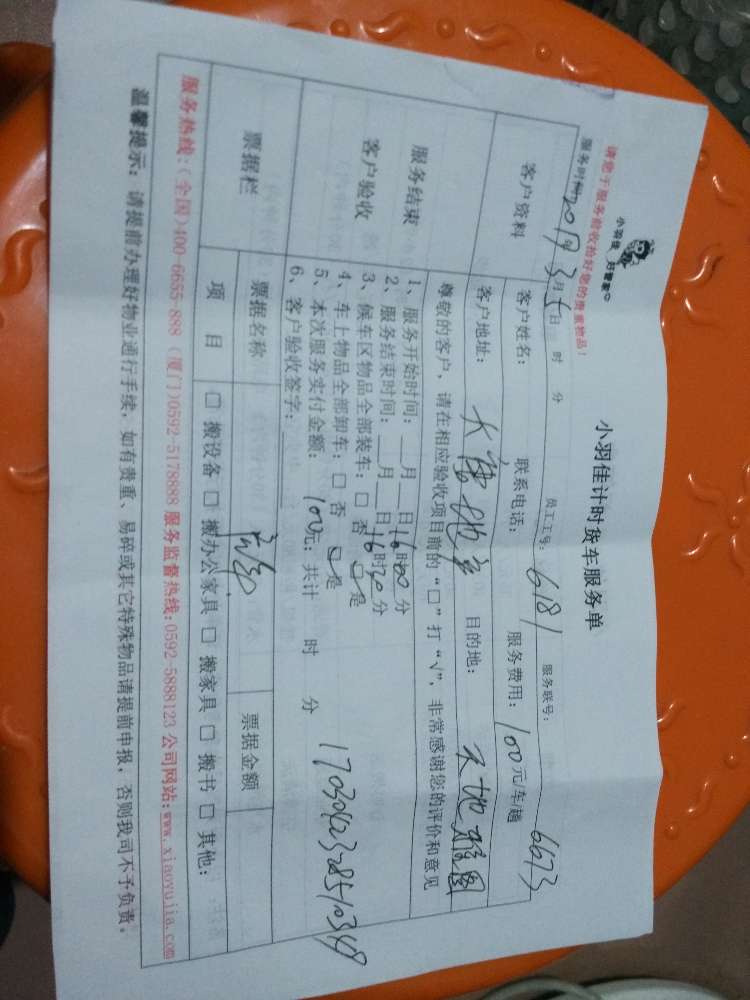 小羽佳 好管家
小羽佳计时货车服务单
请您于服务前收拾好您的贵重物品！
服务时间2017年3月5日 时 分 员工工号：6181 服务联号：6673
客户资料 客户姓名： 联系电话： 服务费用：100元车/趟
客户地址： 目的地：天地雅园
尊敬的客户，请在相应验收项目前的“□”打“√”，非常感谢您的评价和意见
服务结束
客户验收
1、服务开始时间：__月__日16时00分
2、服务结束时间：__月__日16时30分
3、候车区物品全部装车：□ 否 □ 是
4、车上物品全部卸车：□ 否 □ 是
5、本次服务实付金额：100元；共计 时 分
6、客户验收签字：
票据栏 票据名称 票据金额
项目 □ 搬设备 □ 搬办公家具 □ 搬家具 □ 搬书 □ 其他：
服务热线：（全国）400-6655-889（厦门）0592-5178888 服务监督热线：0592-5888123 公司网站：www.xiaoyujia.com
温馨提示：请提前办理好物业通行手续，如有贵重、易碎或其它特殊物品请提前申报，否则我司不予负责。